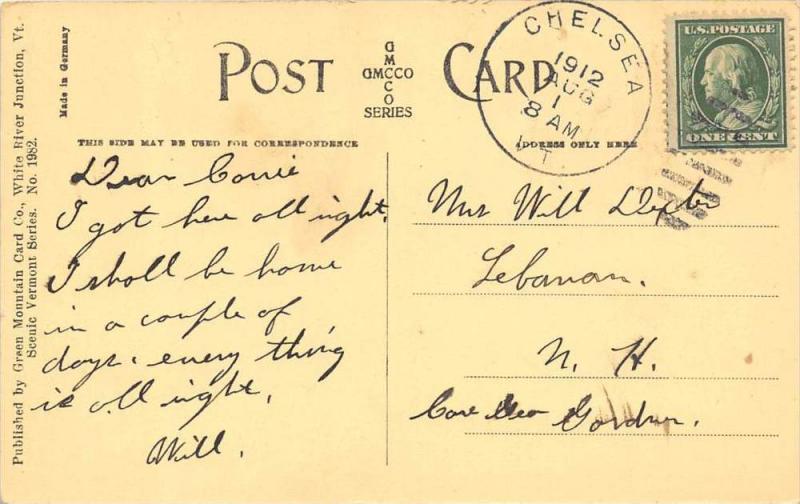 Published by Green Mountain Card Co., White River Junction, Vt.
Scenic Vermont Series. No. 1982.
Made in Germany
POST CARD
G
M
GMCCO
C
O
SERIES
CHELSEA
1912
AUG
1
8 AM
VT.
U.S. POSTAGE
ONE CENT
THIS SIDE MAY BE USED FOR CORRESPONDENCE
ADDRESS ONLY HERE
Dear Carrie
I got here all right.
I shall be home
in a couple of
days. every thing
is all right.
Will.
Mrs Will Dexter
Lebanan.
N. H.
Care Geo Gardner.